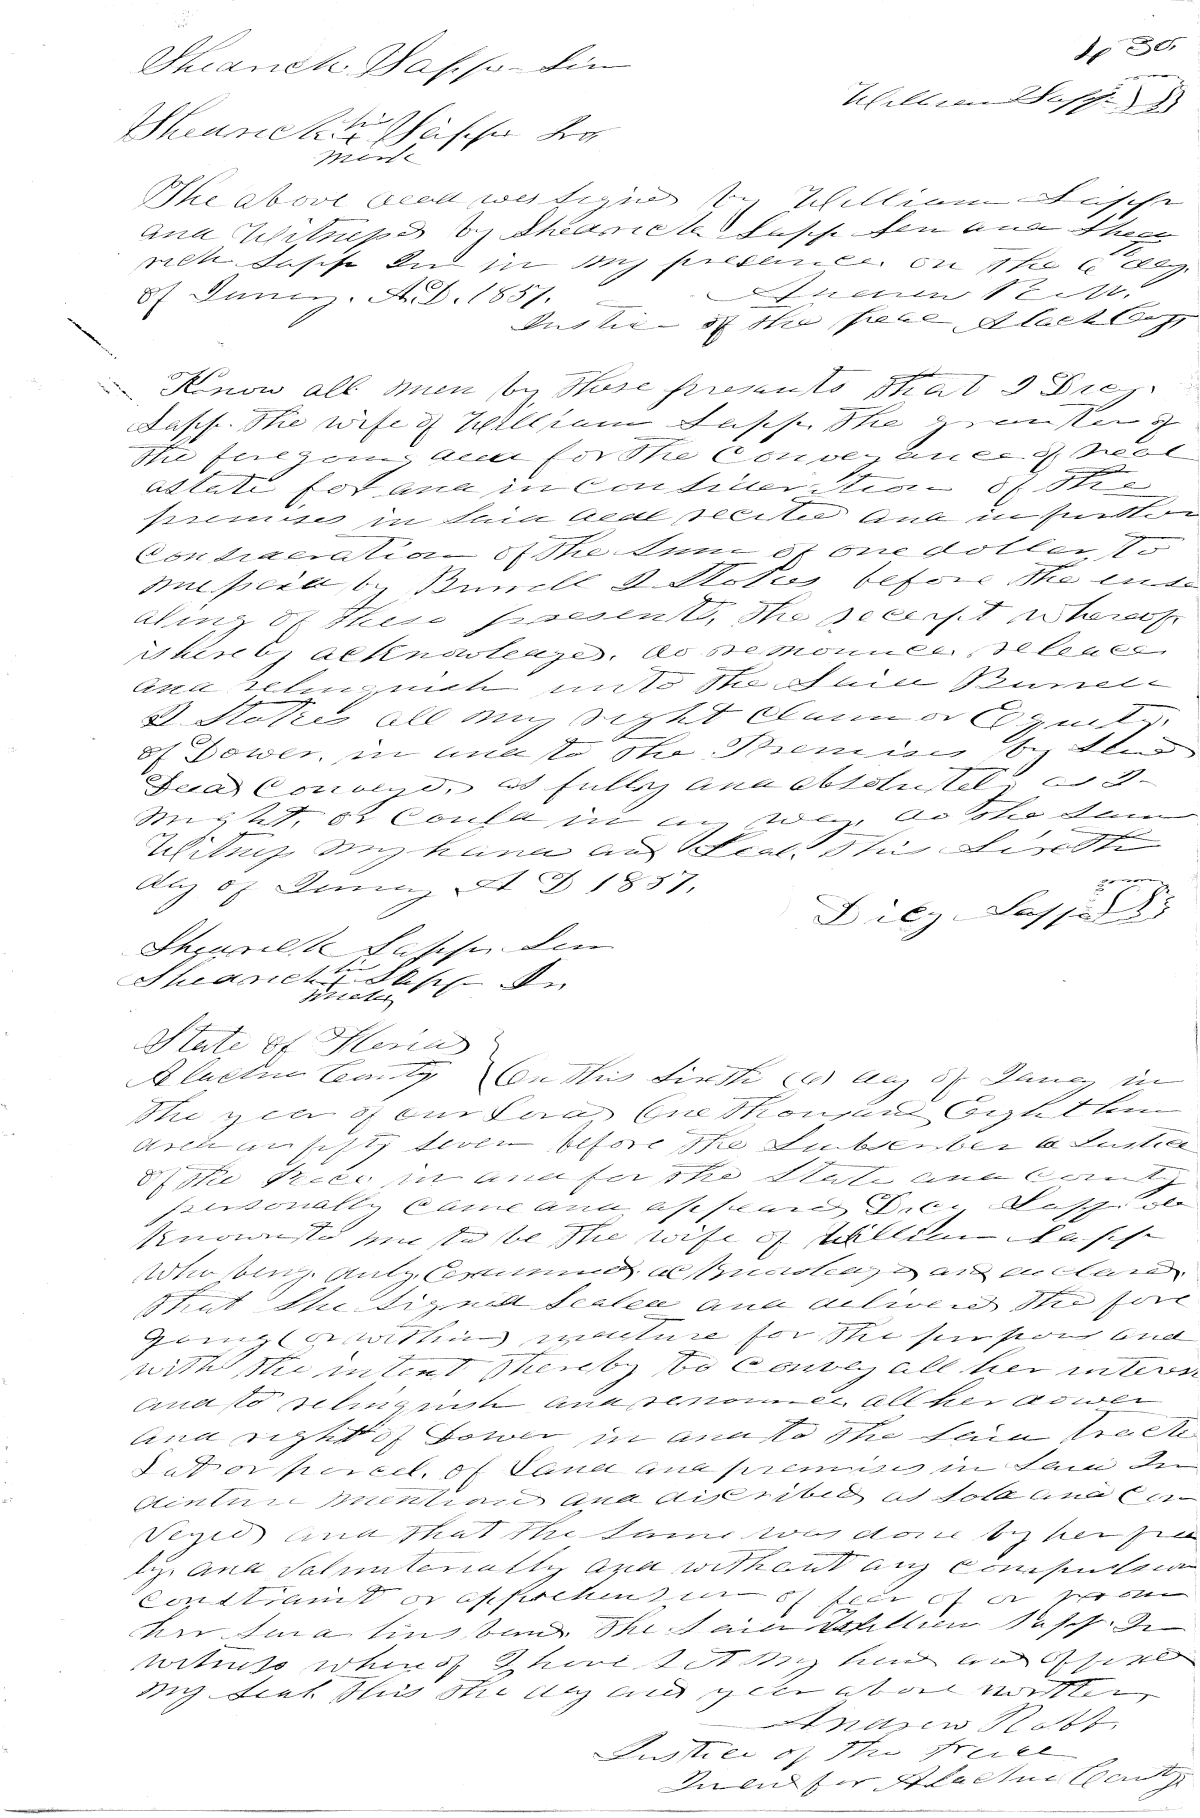 p 30.
Shearick Sapp Sen
William Sapp
Shearick his Sapp Jr
x
mark
The above deed was signed by William Sapp
and Witnessed by Shearick Sapp Sen and Shea
rick Sapp Jn in my presence on the 6th day
of Janry. A.D. 1857.
Andrew
Justice of the peace Alach Couty
Know all men by these presents that I Dicy
Sapp. the wife of William Sapp. the grantor of
the foregoing deed for the Conveyance of real
astate for and in Consideration of the
premises in said deed recited and in further
Consideration of the Sum of one doller, to
me paid by Burrell I Stokes before the ense
aling of these presents, the receipt whereof
is hereby acknowledged. do renounce, release
and relinquish unto the Said Burrell
I Stokes all my right Claim or Equity,
of Dower, in and to the Premises by Said
Deed Conveyed, as fully and absolutely as I
might, or Could in any way, do the Same
Witness my hand and Seal. This Sixth
day of Janry A D 1857.
Dicy Sapp
Shearick Sapp Sen
Shearick his Sapp Jn
x
mark
State of Florida
Alachua County On this Sixth (6) day of Janry in
the year of our Lord One Thousand Eight hun
dred an fifty Seven before the Subscriber a Justice
of the Peace in and for the State and County
personally came and appeared Dicy Sapp to
known to me to be the wife of William Sapp
who being duly Examined acknowledged and declared
that She Signed Sealed and delivered the fore
going (or within) indenture for the purpose and
with the intent thereby to Convey all her interest
and to relinquish and renounce all her dower
and right of Dower in and to the Said tract
Lot or parcel. of Land and premises in Said In
denture mentioned and discribed as Sold and Con
veyed and that the Same was done by her free
ly. and and without any compulsion
constraint or apprehension of fear of or from
her Said husband. The Said William Sapp. In
witness whereof I have Set my hand and affixed
my Seal this the day and year above written
Andrew Robb.
Justice of the Peace
In and for Alachua County